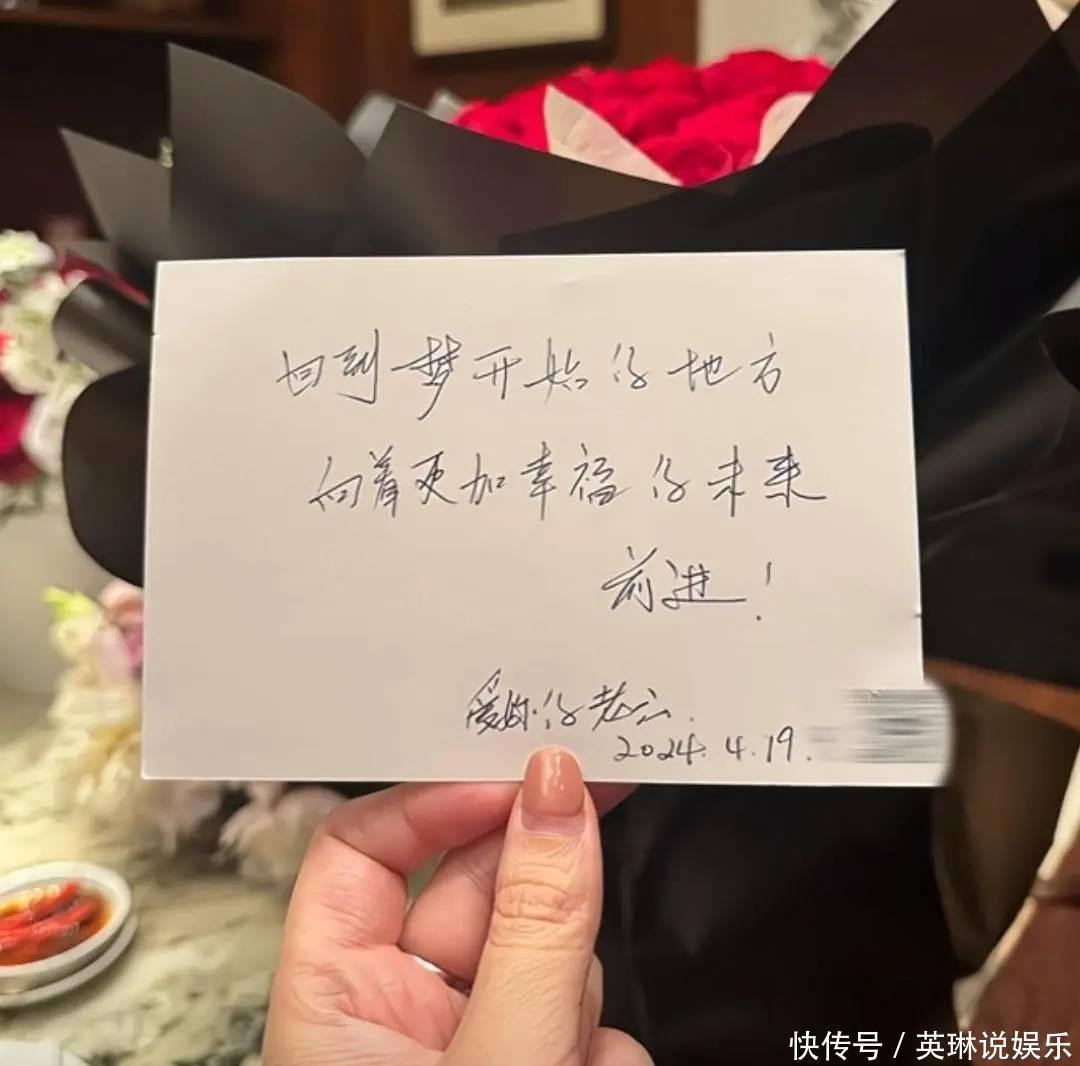 回到梦开始的地方
向着更加幸福的未来
前进！
爱你的老公
2024.4.19.
快传号 / 英琳说娱乐